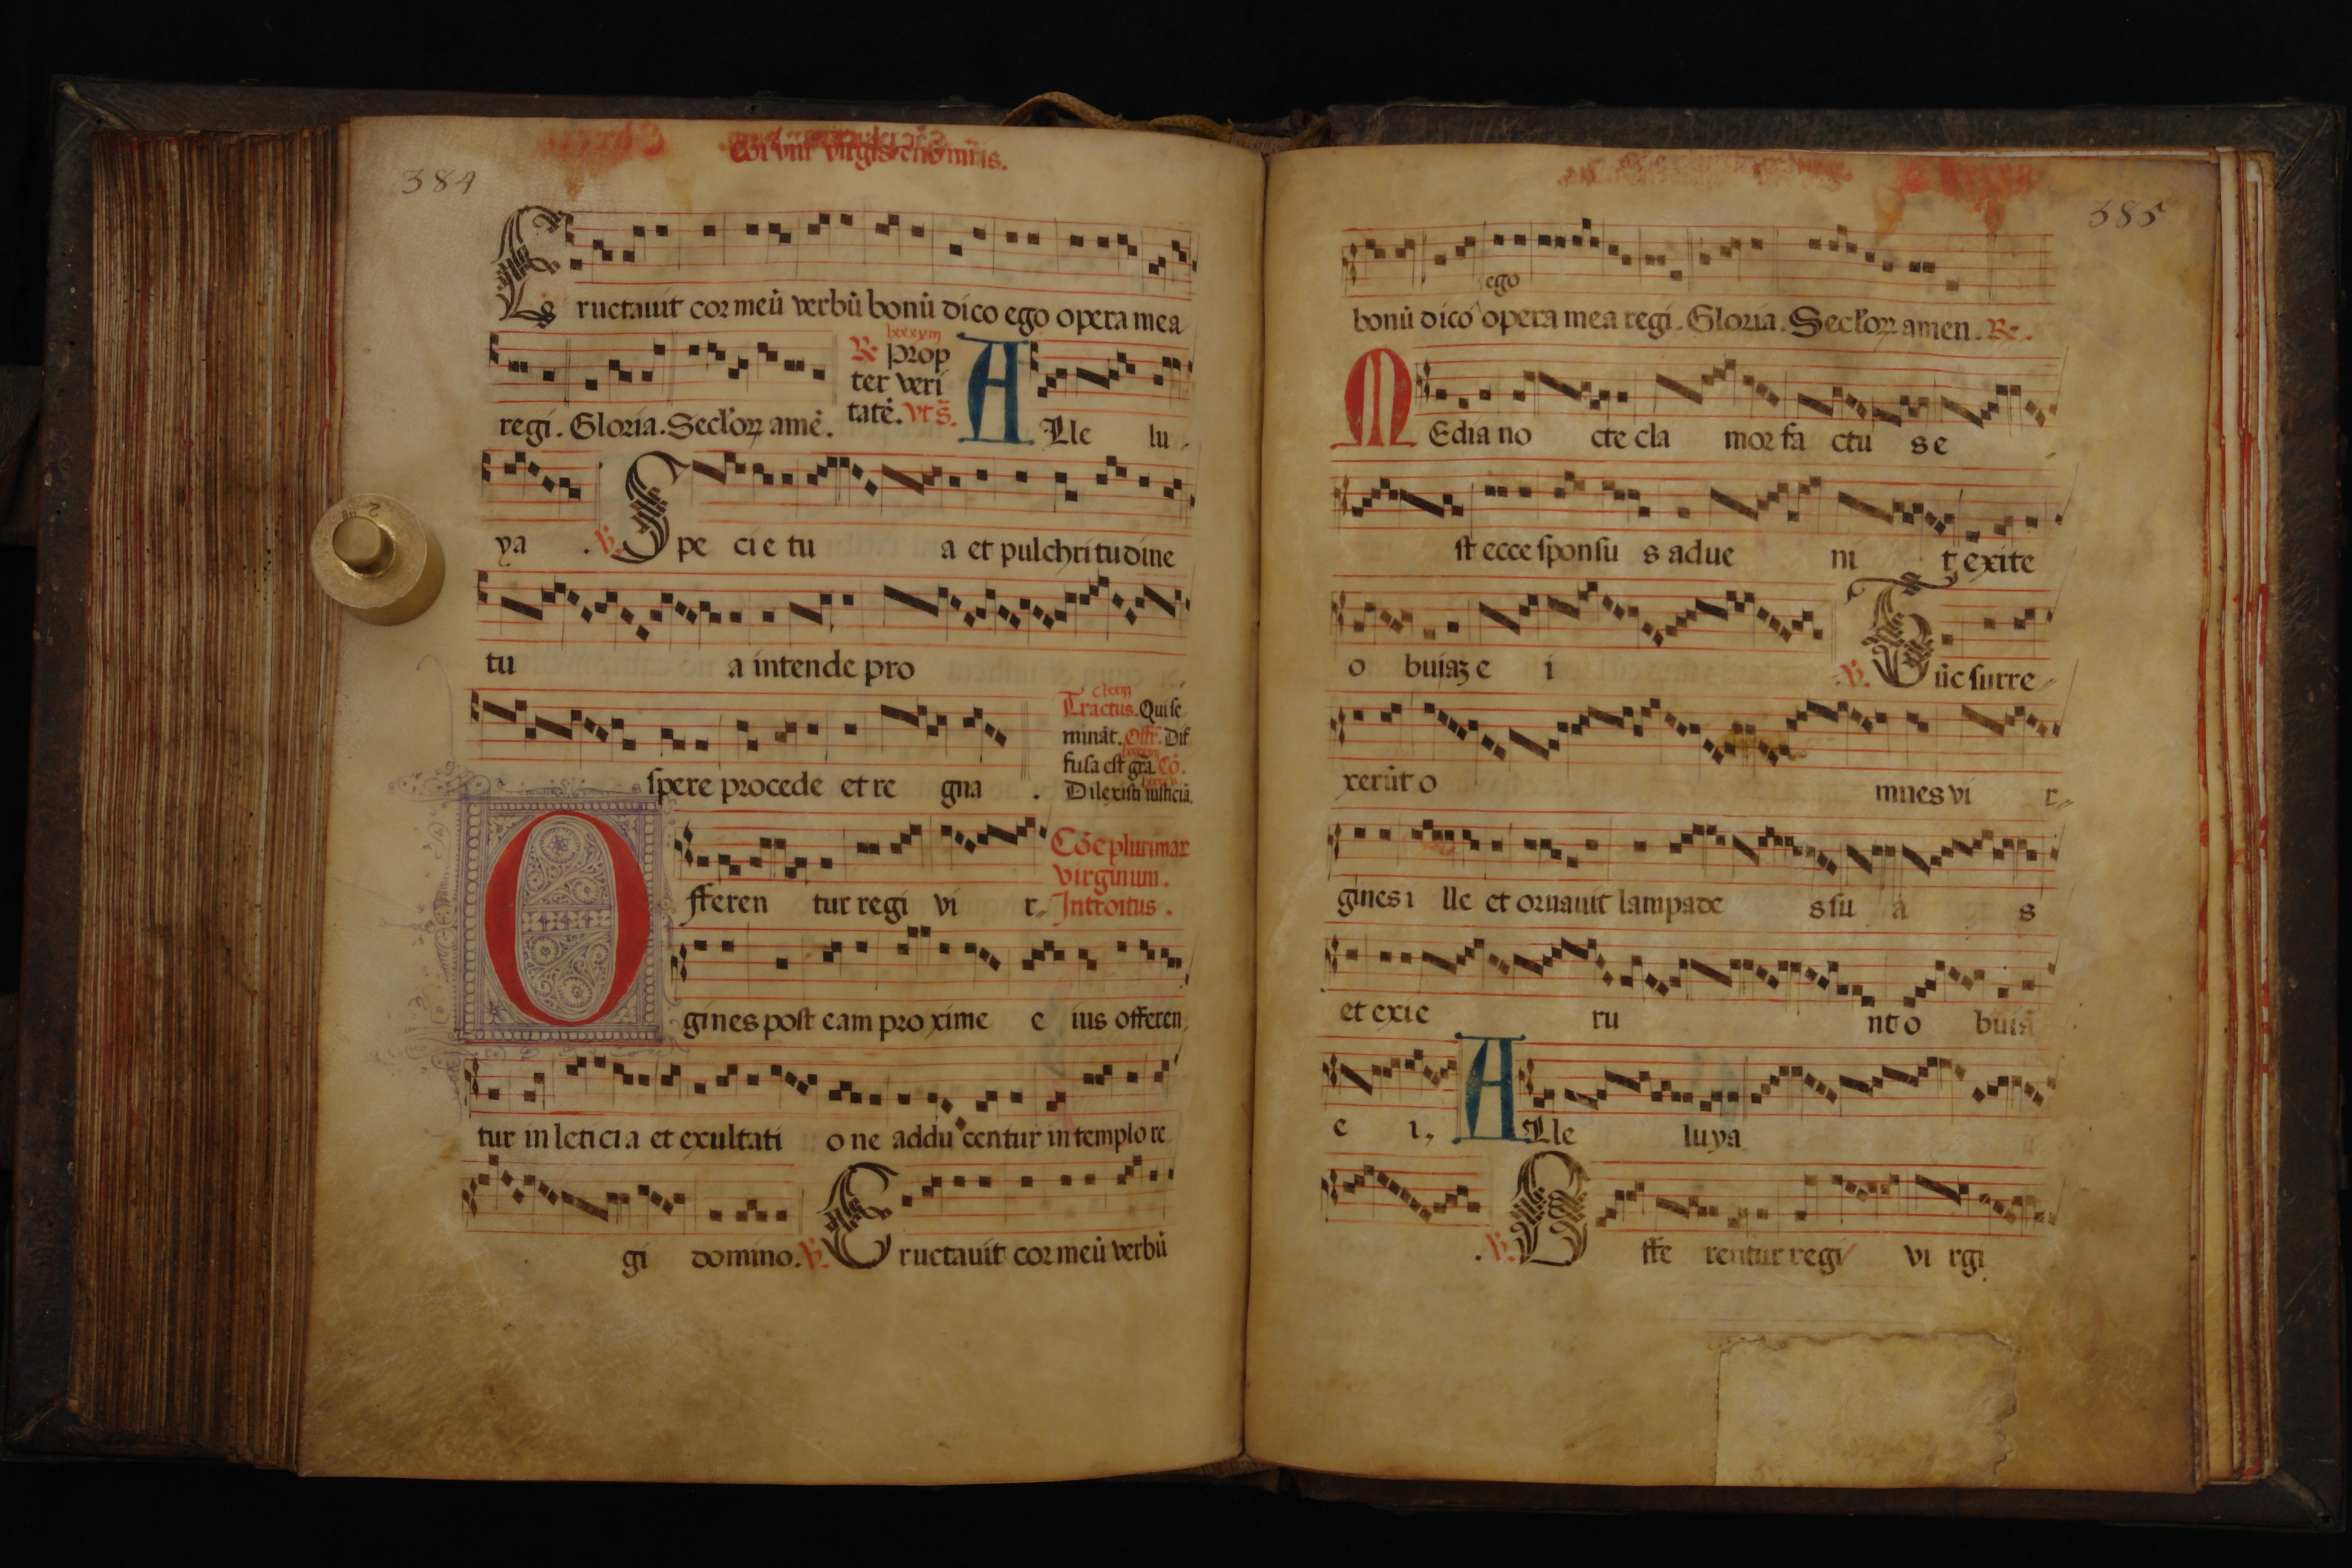 384
ructauit cor meū verbū bonū dico ego opera mea
lxxxvin
℟ Prop
ter veri
tatē. vt s̄.
regi. Gloria. Seclor amē. ALle lu
ya . ℣. Spe cie tu a et pulchritudine
tu a intende pro
Tractus. Qui se
mināt. Offr̄. Dif
fusa est gr̄a. Cō.
Dilexisti iusticiā.
spere procede et re gna .
Cōe plurimar
virginum.
Introitus.
Offeren tur regi vi r
gines post eam proxime e ius offeren
tur in leticia et exultati one adducentur in templo re
gi domino. ℣. Eructauit cor meū verbū
385
ego
bonū dico opera mea regi. Gloria. Seclor amen. ℟.
MEdia no cte cla mor fa ctu s e
st ecce sponsu s adue ni t exite
o buiaʒ e i ℣. Tūc surre
xerūt o mnes vi r
gines i lle et ornauit lampade s su a s
et exie ru nt o buiā
e i, ALle luya
. ℣. Offe rentur regi vi rgi